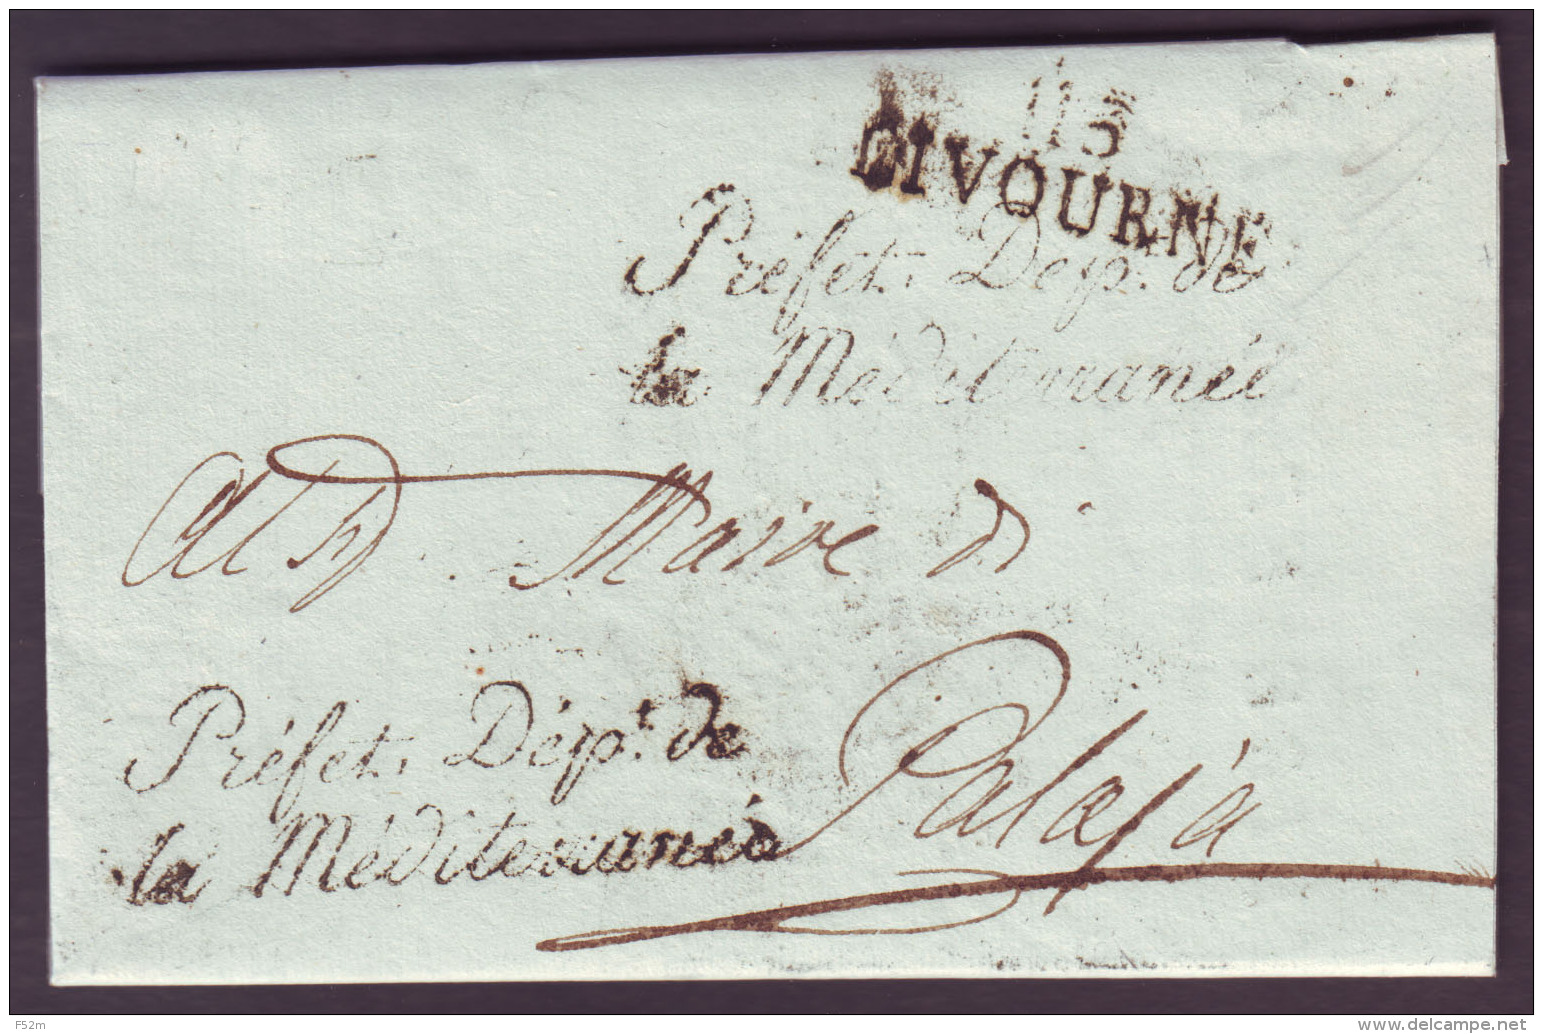 113
LIVOURNE
Préfet. Dep.t de
la Méditerranée
Al Sig. Maire di
Palaja
Préfet. Dép.t de
la Méditerranée
F52m
www.delcampe.net